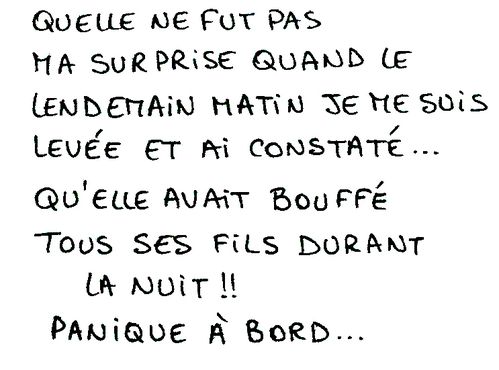 QUELLE NE FUT PAS
MA SURPRISE QUAND LE
LENDEMAIN MATIN JE ME SUIS
LEVÉE ET Ai CONSTATÉ...
QU'ELLE AVAiT BOUFFÉ
TOUS SES FiLS DURANT
LA NUiT !!
PANiQUE À BORD...